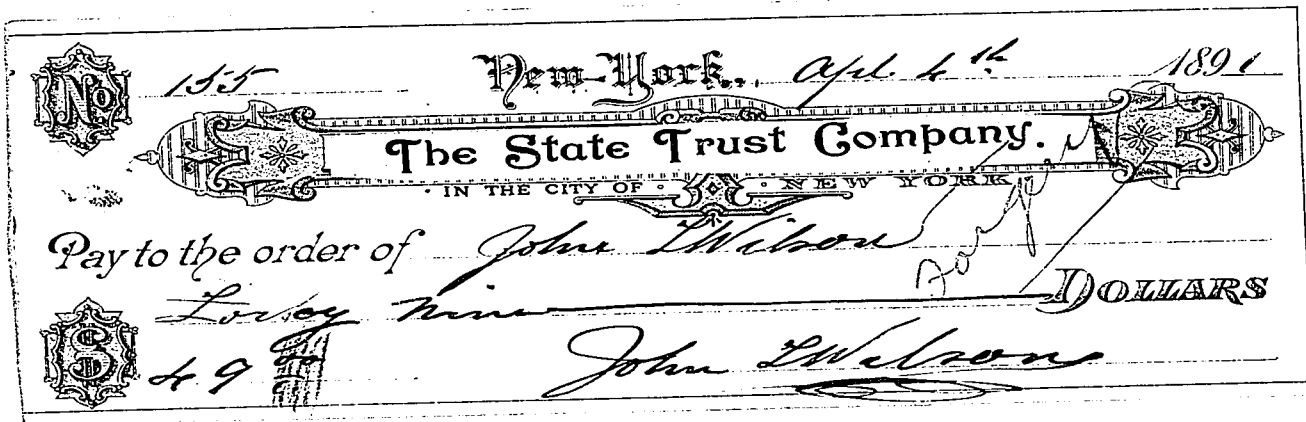 No 155 New-York, Apl. 4th 1891
The State Trust Company.
· IN THE CITY OF · · NEW YORK
Pay to the order of John T Wilson
Forty Nine DOLLARS
$ 49 00
John T Wilson